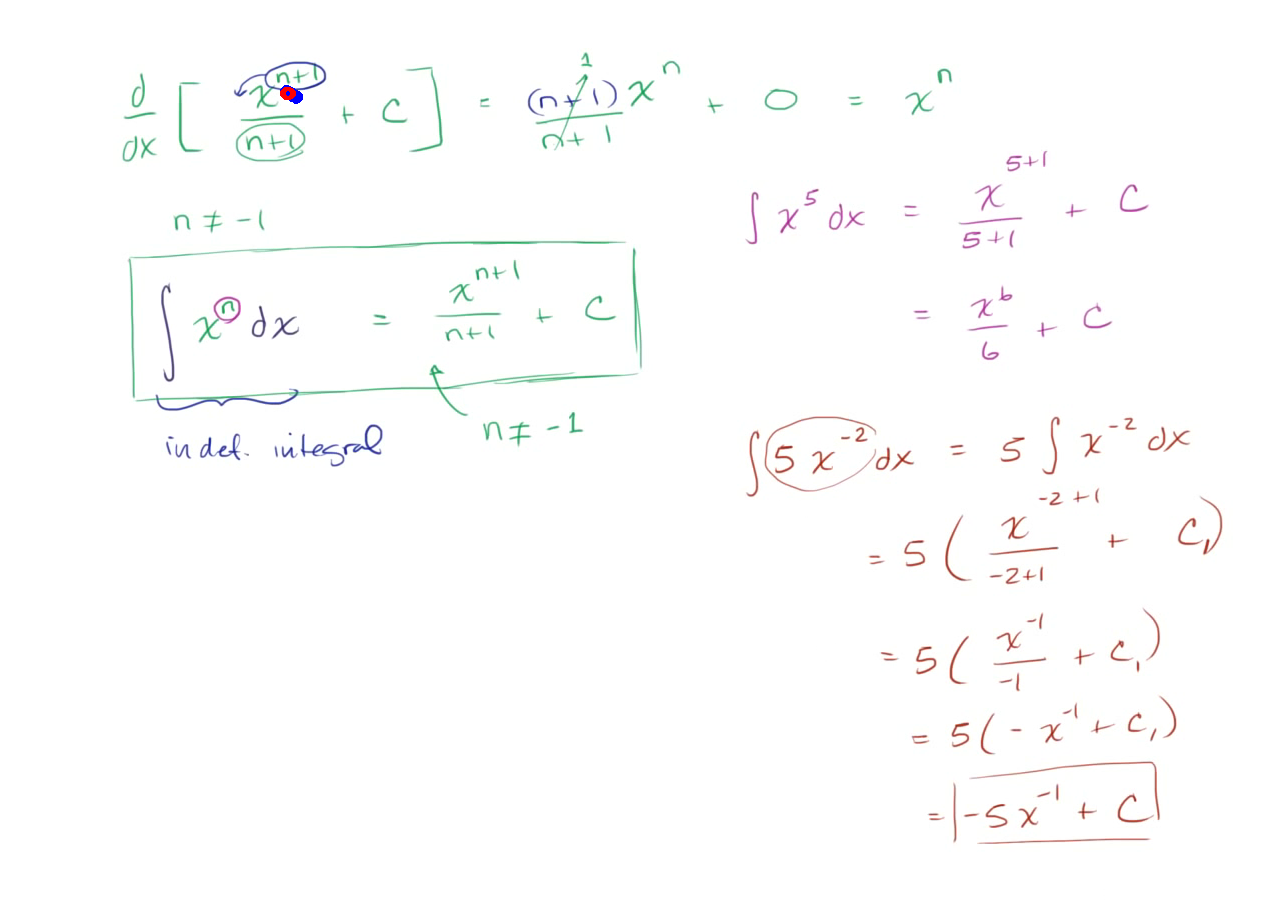 d/dx [ x^(n+1)/(n+1) + C ] = (n+1)x^n/(n+1) + 0 = x^n
1
n ≠ -1
∫ x^n dx = x^(n+1)/(n+1) + C
indef. integral
n ≠ -1
∫ x^5 dx = x^(5+1)/(5+1) + C
= x^6/6 + C
∫ 5x^-2 dx = 5 ∫ x^-2 dx
= 5 ( x^(-2+1)/(-2+1) + C₁ )
= 5 ( x^-1/-1 + C₁ )
= 5 ( - x^-1 + C₁ )
= -5x^-1 + C